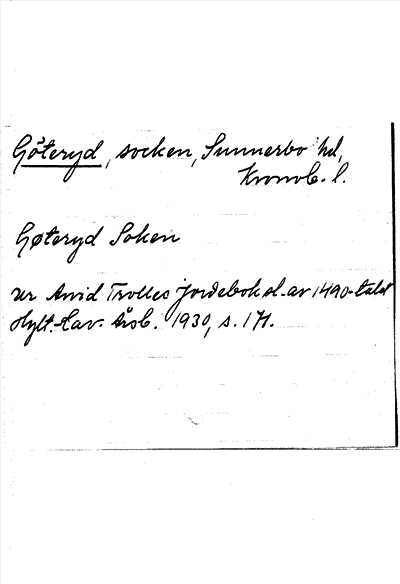 Göteryd, socken, Sunnerbo hd,
Kronob. l.
Gøteryd Soken
ur Arvid Trolles jordebok sl. av 1490-talet
Hylt.-Cav. Årsb. 1930, s. 171.